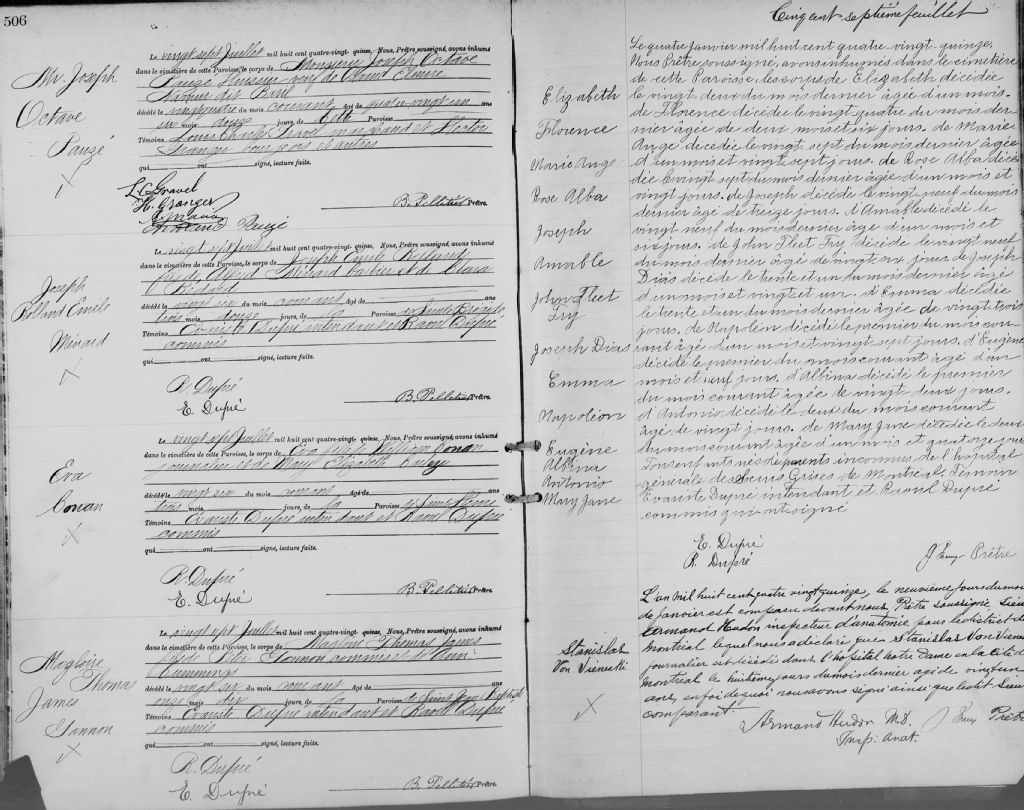 506
Mr. Joseph
Octave
Pauzé
Le vingt sept Juillet mil huit cent quatre-vingt-quinze, Nous, Prêtre soussigné, avons inhumé
dans le cimetière de cette Paroisse, le corps de Monsieur Joseph Octave
Pauzé Huissier veuf de
dit
décédé le vingt quatre du mois courant âgé de quatre vingt un ans
six mois douze jours, de Paroisse
Témoins Louis Charles Gravel marchand et Hector
Granger bourgeois et autres
qui ont signé, lecture faite.
L C Gravel
H. Granger
B. Pelletier Prêtre.
Joseph
Rolland Emile
Ménard
Le vingt sept Juillet mil huit cent quatre-vingt-quinze, Nous, Prêtre soussigné, avons inhumé
dans le cimetière de cette Paroisse, le corps de Joseph Emile Rolland
Ménard barbier et de Clara
Bédard
décédé le vingt six du mois courant âgé de ans
trois mois douze jours, de la Paroisse Sainte Brigide,
Témoins Evariste Dupré intendant et Raoul Dupré
commis
qui ont signé, lecture faite.
R. Dupré
E. Dupré
B. Pelletier Prêtre.
Eva
Conan
Le vingt sept Juillet mil huit cent quatre-vingt-quinze, Nous, Prêtre soussigné, avons inhumé
dans le cimetière de cette Paroisse, le corps de Eva fille de William Conan
journalier et de Mary Elizabeth
décédé le vingt six du mois courant âgé de ans
trois mois jours, de la Paroisse
Témoins Evariste Dupré intendant et Raoul Dupré
commis
qui ont signé, lecture faite.
R. Dupré
E. Dupré
B. Pelletier Prêtre.
Magloire
Thomas
James
Gannon
Le vingt sept Juillet mil huit cent quatre-vingt-quinze, Nous, Prêtre soussigné, avons inhumé
dans le cimetière de cette Paroisse, le corps de Thomas James
commis et de
Cummings
décédé le vingt six du mois courant âgé de ans
onze mois dix jours, de la Paroisse de Saint Jean Baptiste
Témoins Evariste Dupré intendant et Raoul Dupré
commis
qui ont signé, lecture faite.
R. Dupré
E. Dupré
B. Pelletier Prêtre.
Cinq cent septième feuillet
Elizabeth
Florence
Marie Ange
Rose Alba
Joseph
Amable
John Fleet
Fry
Joseph Dias
Emma
Napoléon
Eugène
Albina
Antonio
Mary Jane
Le quatre janvier mil huit cent quatre-vingt-quinze,
Nous Prêtre soussigné, avons inhumés dans le cimetière
de cette Paroisse les corps de Elizabeth décédée
le vingt deux du mois dernier âgée d'un mois.
de Florence décédée le vingt quatre du mois der
nier âgée de deux mois et six jours. de Marie
Ange décédée le vingt sept du mois dernier âgée
d'un mois et vingt sept jours. de Rose Alba décé
dée le vingt sept du mois dernier âgée d'un mois et
vingt jours. de Joseph décédé le vingt neuf du mois
dernier âgé de treize jours. d'Amable décédé le
vingt neuf du mois dernier âgé d'un mois et
six jours. de John Fleet Fry décédé le vingt neuf
du mois dernier âgé de vingt six jours. de Joseph
Dias décédé le trente et un du mois dernier âgé
d'un mois et vingt et un. d'Emma décédée
le trente et un du mois dernier âgée de vingt trois
jours. de Napoléon décédé le premier du mois cou
rant âgé d'un mois et vingt sept jours. d'Eugène
décédé le premier du mois courant âgé d'un
mois et neuf jours. d'Albina décédée le premier
du mois courant âgée de vingt deux jours.
d'Antonio décédé le deux du mois courant
âgé de vingt jours. de Mary Jane décédée le deux
du mois courant âgée d'un mois et quatorze jours
Tous enfants nés de parents inconnus. de l'hôpital
générale des Soeurs Grises de Montréal. Témoin
Evariste Dupré intendant et Raoul Dupré
commis qui ont signé
E. Dupré
R. Dupré
Prêtre
Stanislas
Von
L'an mil huit cent quatre vingt quinze, le neuvième jours du mois
de janvier est comparu devant nous, Prêtre soussigné, Sieur
Armand Hudon inspecteur d'anatomie pour le district de
Montréal lequel nous a déclaré que Stanislas Von
journalier est décédé dans l'hôpital Notre Dame en la cité de
Montréal le huitième jours du mois dernier âgé de vingt un
ans, en foi de quoi nous avons signé ainsi que le dit Sieur
comparant.
Armand Hudon M.D.
Insp: Anat.
Prêtre